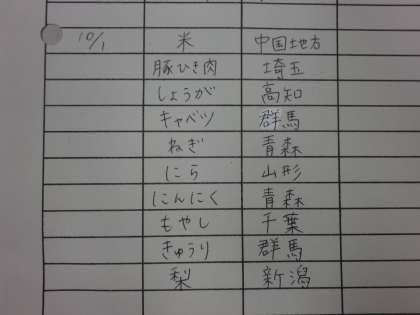 10/1 米 中国地方
豚ひき肉 埼玉
しょうが 高知
キャベツ 群馬
ねぎ 青森
にら 山形
にんにく 青森
もやし 千葉
きゅうり 群馬
梨 新潟